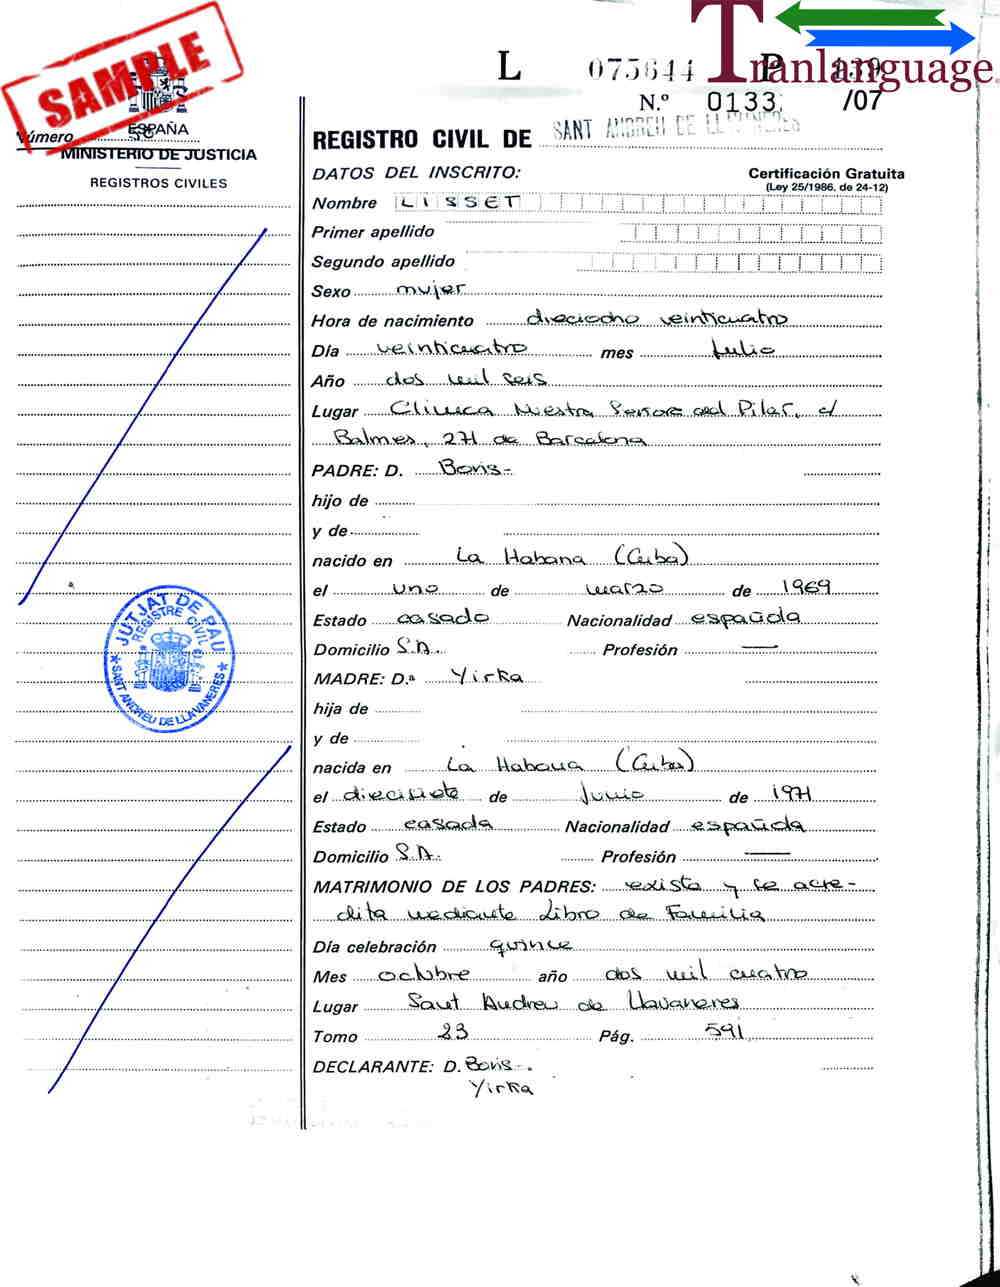 SAMPLE
Tranlanguage
L 075644 P
N.º 0133 /07
ESPAÑA
Número 58
MINISTERIO DE JUSTICIA
REGISTROS CIVILES
REGISTRO CIVIL DE SANT ANDREU DE LLAVANERES
DATOS DEL INSCRITO:
Certificación Gratuita
(Ley 25/1986, de 24-12)
Nombre LISSET
Primer apellido
Segundo apellido
Sexo mujer
Hora de nacimiento dieciocho veinticuatro
Día veinticuatro mes Julio
Año dos mil seis
Lugar Clínica Nuestra Señora del Pilar, c/
Balmes, 271 de Barcelona
PADRE: D. Boris-
hijo de
y de
nacido en La Habana (Cuba)
el uno de marzo de 1969
Estado casado Nacionalidad española
Domicilio S.A. Profesión —
MADRE: D.ª Yirka
hija de
y de
nacida en La Habana (Cuba)
el diecisiete de Junio de 1971
Estado casada Nacionalidad española
Domicilio S.A. Profesión —
MATRIMONIO DE LOS PADRES: existe y se acre-
dita mediante Libro de Familia
Día celebración quince
Mes octubre año dos mil cuatro
Lugar Sant Andreu de Llavaneres
Tomo 23 Pág. 591
DECLARANTE: D. Boris-.
Yirka
JUTJAT DE PAU
REGISTRE CIVIL
SANT ANDREU DE LLAVANERES